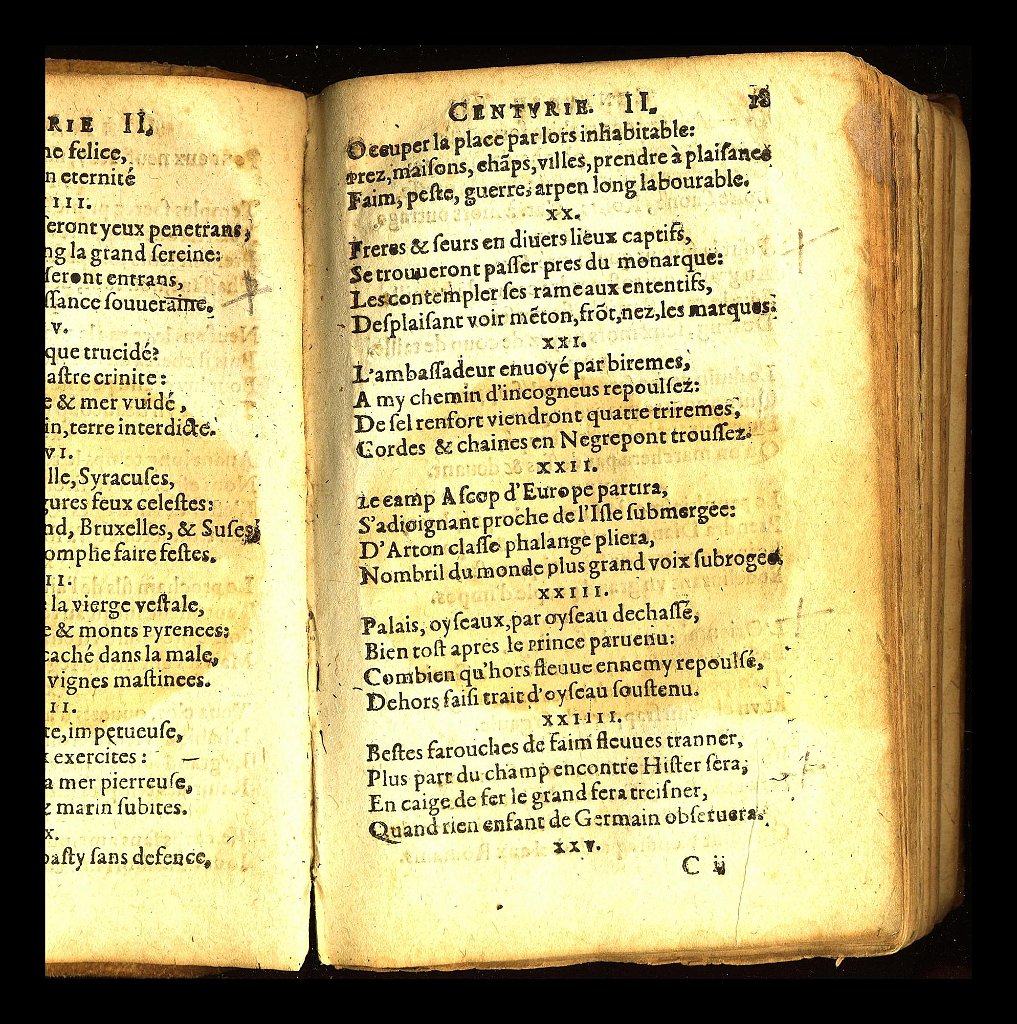 RIE II.
ne felice,
n eternité
IIII.
ſeront yeux penetrans,
ng la grand ſereine:
ſeront entrans,
ſſance ſouueraine.
V.
que trucidé?
aſtre crinite:
e & mer vuidé,
in, terre interdicte.
VI.
lle, Syracuſes,
gures feux celeſtes:
nd, Bruxelles, & Suſes,
omphe faire feſtes.
II.
la vierge veſtale,
e & monts Pyrences:
caché dans la male,
vignes maſtinees.
II.
te, impetueuſe,
exercites:
a mer pierreuſe,
& marin ſubites.
X.
baſty ſans defence,
CENTVRIE. II. 18
Occuper la place par lors inhabitable:
Prez, maiſons, chãps, villes, prendre à plaiſance
Faim, peſte, guerre, arpen long labourable.
XX.
Freres & ſeurs en diuers lieux captifs,
Se trouueront paſſer pres du monarque:
Les contempler ſes rameaux ententifs,
Deſplaiſant voir mẽton, frõt, nez, les marques.
XXI.
L'ambaſſadeur enuoyé par biremes,
A my chemin d'incogneus repoulſez:
De ſel renfort viendront quatre triremes,
Cordes & chaines en Negrepont trouſſez.
XXII.
Le camp Aſcop d'Europe partira,
S'adioignant proche de l'Iſle ſubmergee:
D'Arton claſſe phalange pliera,
Nombril du monde plus grand voix ſubrogee.
XXIII.
Palais, oyſeaux, par oyſeau dechaſſé,
Bien toſt apres le Prince paruenu:
Combien qu'hors fleuue ennemy repoulſé,
Dehors ſaiſi trait d'oyſeau ſouſtenu.
XXIIII.
Beſtes farouches de faim fleuues tranner,
Plus part du champ encontre Hiſter ſera,
En caige de fer le grand fera treiſner,
Quand rien enfant de Germain obſeruera.
XXV.
C ij